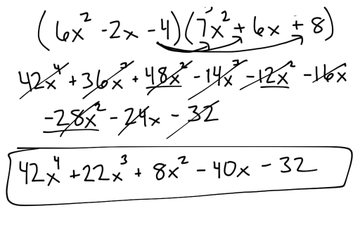 (6x² - 2x - 4)(7x² + 6x + 8)
42x⁴ + 36x³ + 48x² - 14x³ - 12x² - 16x
- 28x² - 24x - 32
42x⁴ + 22x³ + 8x² - 40x - 32